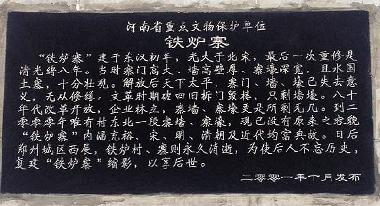 河南省重点文物保护单位
铁炉寨
“铁炉寨”建于东汉初年，光大于北宋，最后一次重修是
清光绪八年。当时寨门高大、墙高壁厚、寨壕深宽，且水围
土寨，十分壮观。解放后天下太平，寨门、墙、壕已失去意
义，无从修缮，文革时期砖四旧拆门毁楼，只剩墙壕。八十
年代改革开放，企业林立，寨墙、寨壕更是所剩无几。到二
零零零年唯有村东北一段寨墙、寨壕，现已没有原来之容貌
“铁炉寨”内涵充裕，宋、明、清朝及近代均宫典故。日后
郑州城区西展，铁炉村、寨则永久消逝，为使后人不忘历史，
复建“铁炉寨”缩影，以享后世。
二零零一年 月发布